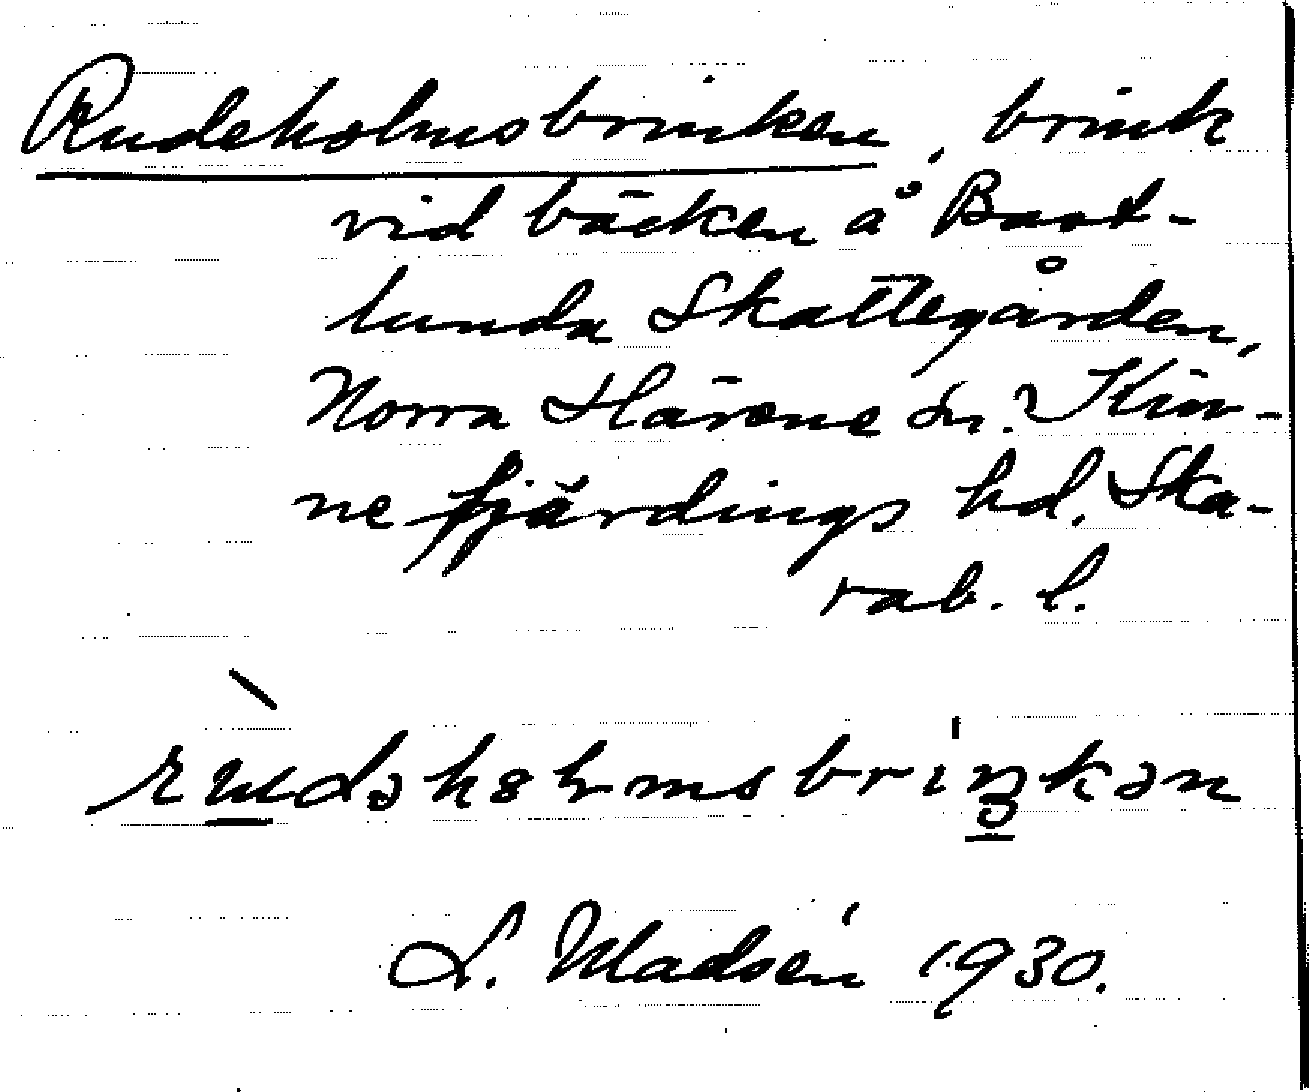 Rudeholmsbrinken, brink
vid bäcken å Bast-
lunda Skattegården,
Norra Härene sn. Kin-
ne fjärdings hd. Ska-
rab. l.
L. Madsén 1930.